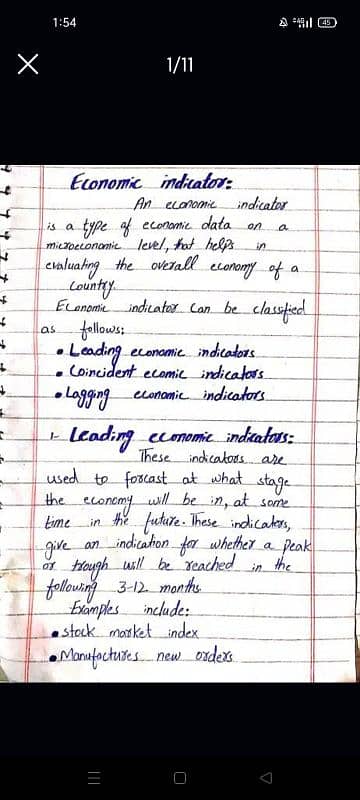 1:54
45
1/11
Economic indicator:
An economic indicator
is a type of economic data on a
microeconomic level, that helps in
evaluating the overall economy of a
country.
Economic indicator can be classified
as follows:
• Leading economic indicators
• Coincident ecomic indicators
• Lagging economic indicators
1- Leading economic indicators:
These indicators are
used to forcast at what stage
the economy will be in, at some
time in the future. These indicators,
give an indication for whether a peak
or trough will be reached in the
following 3-12 months.
Examples include:
• stock market index
• Manufactures new orders